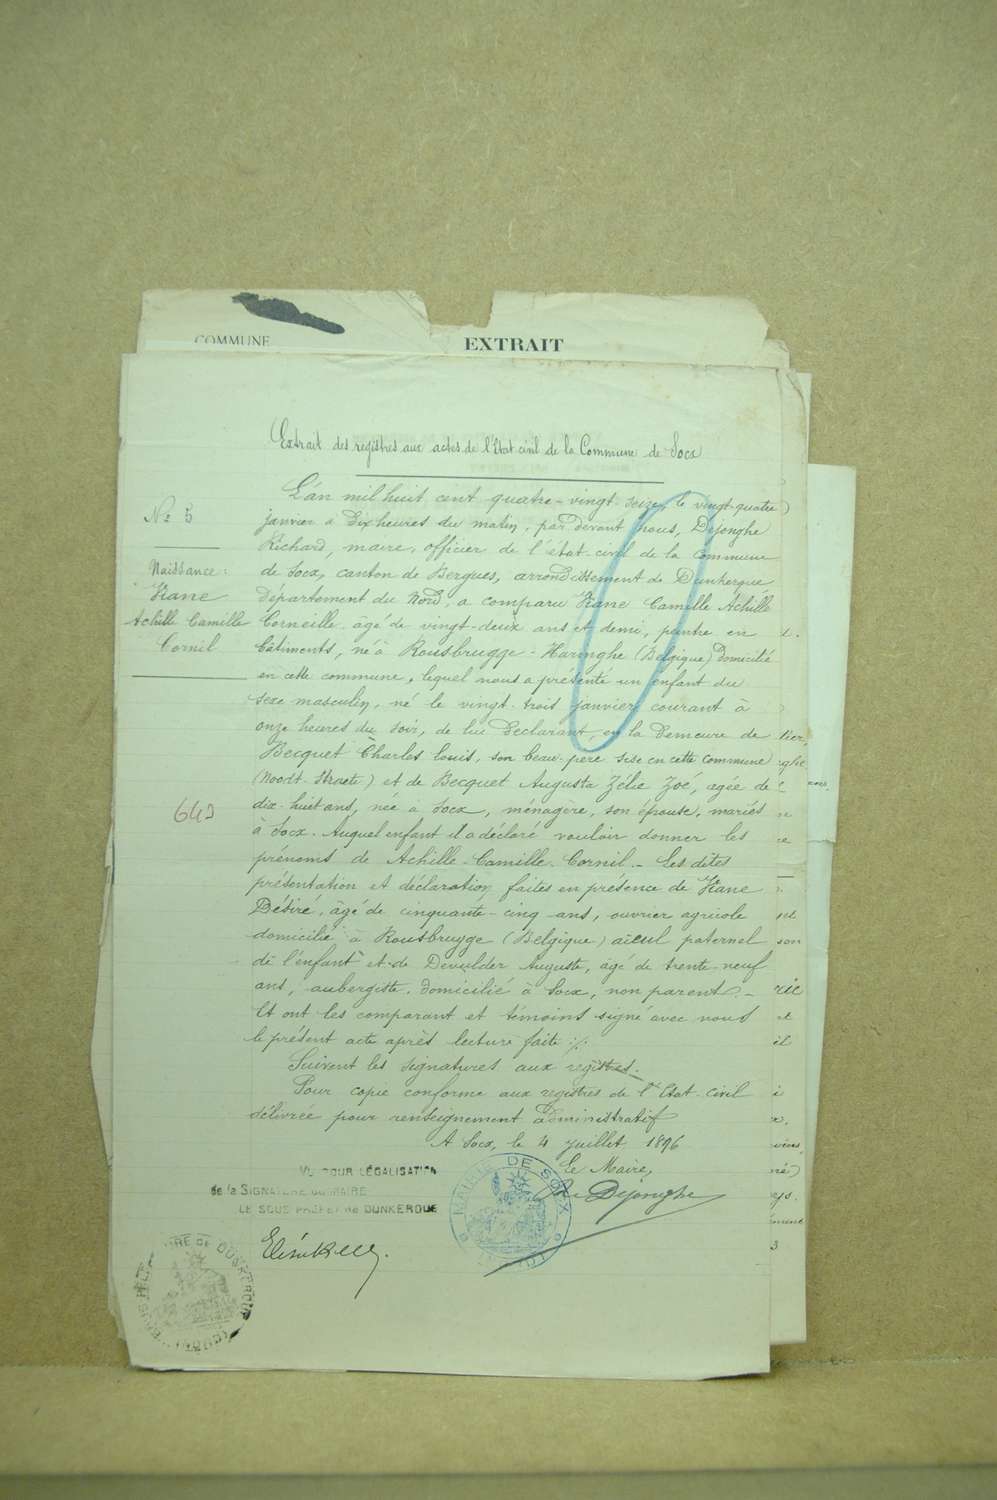 COMMUNE
EXTRAIT
Extrait des registres aux actes de l'Etat civil de la Commune de Socx
N° 5
Naissance:
Achille Camille
Cornil
640
L'án mil huit cent quatre-vingt-seize, le vingt-quatre
janvier à dix heures du matin, par devant nous, Dejonghe
Richard, maire, officier de l'état-civil de la commune
de Socx, canton de Bergues, arrondissement de Dunkerque
département du Nord, a comparu Camille Achille
Corneille âgé de vingt-deux ans et demi, peintre en
bâtiments, né à Rousbrugge-Haringhe (Belgique) domicilié
en cette commune, lequel nous a présenté un enfant du
sexe masculin, né le vingt-trois janvier courant à
onze heures du soir, de lui déclarant, en la demeure de
Becquet Charles Louis, son beau-père sise en cette commune
(Noordt-Straete) et de Becquet Augusta Zélie Zoé, agée de
dix-huit ans, née à Socx, ménagère, son épouse, mariés
à Socx. Auquel enfant il a déclaré vouloir donner les
prénoms de Achille-Camille-Cornil - Les dites
présentation et déclaration faites en présence de
Désiré, âgé de cinquante-cinq ans, ouvrier agricole
domicilié à Rousbrugge (Belgique) aïeul paternel
de l'enfant et de Devulder Auguste, âgé de trente-neuf
ans, aubergiste, domicilié à Socx, non parent. -
Et ont les comparant et temoins signé avec nous
le présent acte après lecture faite ./.
Suivent les signatures aux registres.
Pour copie conforme aux registres de l'Etat-civil
délivrée pour renseignement administratif
A Socx, le 4 juillet 1896
Le Maire,
Dejonghe
VU POUR LÉGALISATION
de la SIGNATURE DU MAIRE
LE SOUS PREFET de DUNKERQUE
MAIRIE DE SOCX
(NORD)